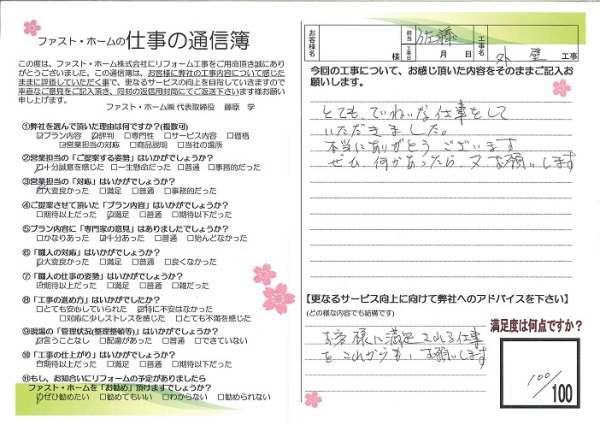 ファスト・ホームの 仕事の通信簿
この度は、ファスト・ホーム株式会社にリフォーム工事をご用命頂き誠にあり
がとうございました。この通信簿は、お客様に弊社の工事内容について感じた
ままに評価していただく事で、更なるサービスの向上を目指していきますので
率直なご意見をご記入頂き、同封の返信用封筒にてご返送下さいます様お願い
申し上げます。
ファスト・ホーム㈱ 代表取締役 藤原 学
①弊社を選んで頂いた理由は何ですか?(複数可)
☑プラン内容 ☑評判 □専門性 □サービス内容 □価格
☑営業担当の対応 □商品説明 □当社の場所
②営業担当の「ご提案する姿勢」はいかがでしょうか?
☑十分誠意を感じた □一生懸命だった □普通 □事務的だった
③営業担当の「対応」はいかがでしょうか?
☑大変良かった □満足 □普通 □事務的だった
④ご提案させて頂いた「プラン内容」はいかがでしょうか?
□期待以上だった ☑満足 □普通 □期待以下だった
⑤プラン内容に「専門家の意見」はありましたでしょうか?
□かなりあった ☑十分あった □普通 □殆んどなかった
⑥「職人の対応」はいかがでしょうか?
☑大変良かった □満足 □普通 □良くなかった
⑦「職人の仕事の姿勢」はいかがでしょうか?
☑期待以上だった □満足 □普通 □雑だった
⑧「工事の進め方」はいかがでしたか?
□とても安心していられた ☑特に不安はなかった
□対応に少しストレスを感じた □とても不満を感じた
⑨現場の「管理状況(整理整頓等)」はいかがでしょうか?
☑言うことなし □配慮があった □普通 □できていない
⑩「工事の仕上がり」はいかがでしょうか?
☑期待以上だった □満足 □普通 □期待以下だった
⑪もし、お知合いにリフォームの予定がありましたら
ファスト・ホームを「お勧め」頂けますでしょうか?
☑ぜひ勧めたい □勧めてもいい □わからない □勧められない
お客様名 様 担当 佐藤 月 日 工事名 外壁 工事
今回の工事について、お感じ頂いた内容をそのままご記入お
願いします。
とても、ていねいな仕事をして
いただきました。
本当にありがとうございます
ぜひ、何かあったら、又お願いします
【更なるサービス向上に向けて弊社へのアドバイスを下さい】
(どの様な内容でも結構です)
お客様に満足される仕事
をこれからも、お願いします
満足度は何点ですか?
100/100